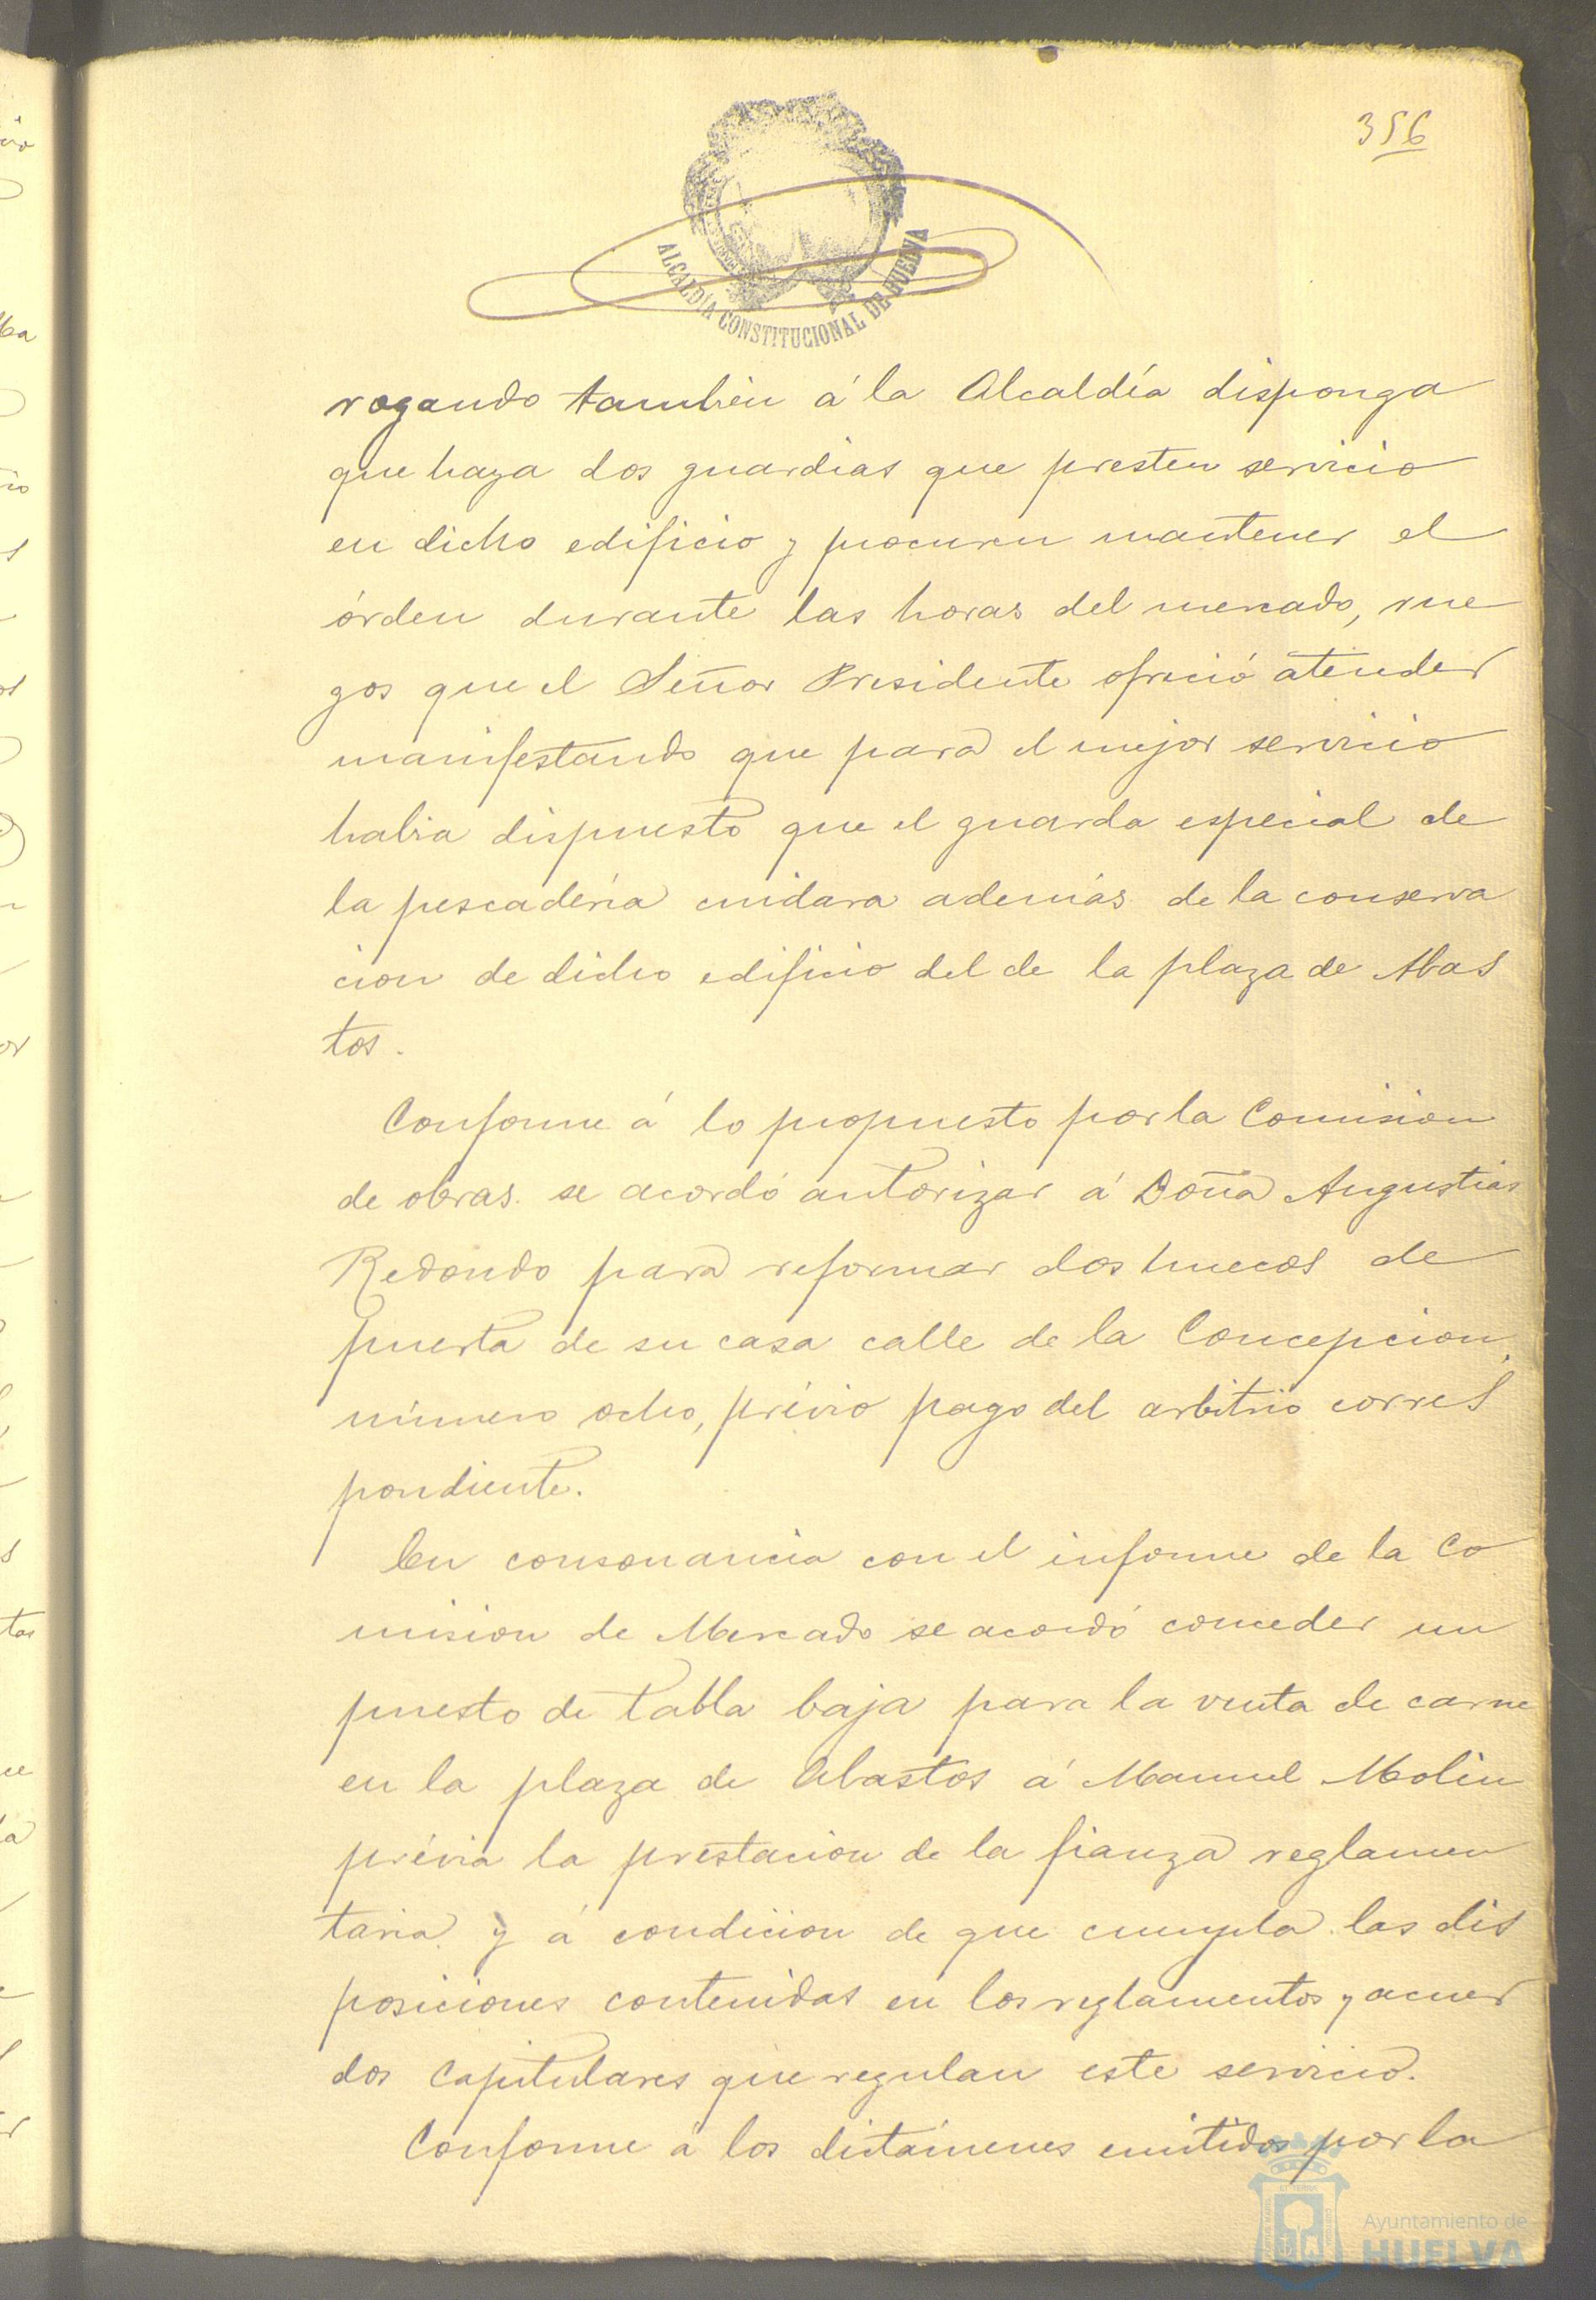 356
ALCALDÍA CONSTITUCIONAL DE HUELVA
rogando tambien á la Alcaldía disponga
que haya dos guardias que presten servicio
en dicho edificio y procuren mantener el
órden durante las horas del mercado, rue
gos que el Señor Presidente ofreció atender
manifestando que para el mejor servicio
habia dispuesto que el guarda especial de
la pescadería cuidara además de la conserva
cion de dicho edificio del de la plaza de Abas
tos.
Conforme á lo propuesto por la Comision
de obras se acordó autorizar á Doña Angustias
Redondo para reformar dos huecos de
puerta de su casa calle de la Concepcion,
número ocho, prévio pago del arbitrio corres
pondiente.
En consonancia con el informe de la Co
mision de Mercado se acordó conceder un
puesto de tabla baja para la venta de carne
en la plaza de Abastos á Manuel Molin
prévia la prestacion de la fianza reglamen
taria y á condicion de que cumpla las dis
posiciones contenidas en los reglamentos y acuer
dos capitulares que regulan este servicio.
Conforme á los dictámenes emitidos por la
Ayuntamiento de
HUELVA